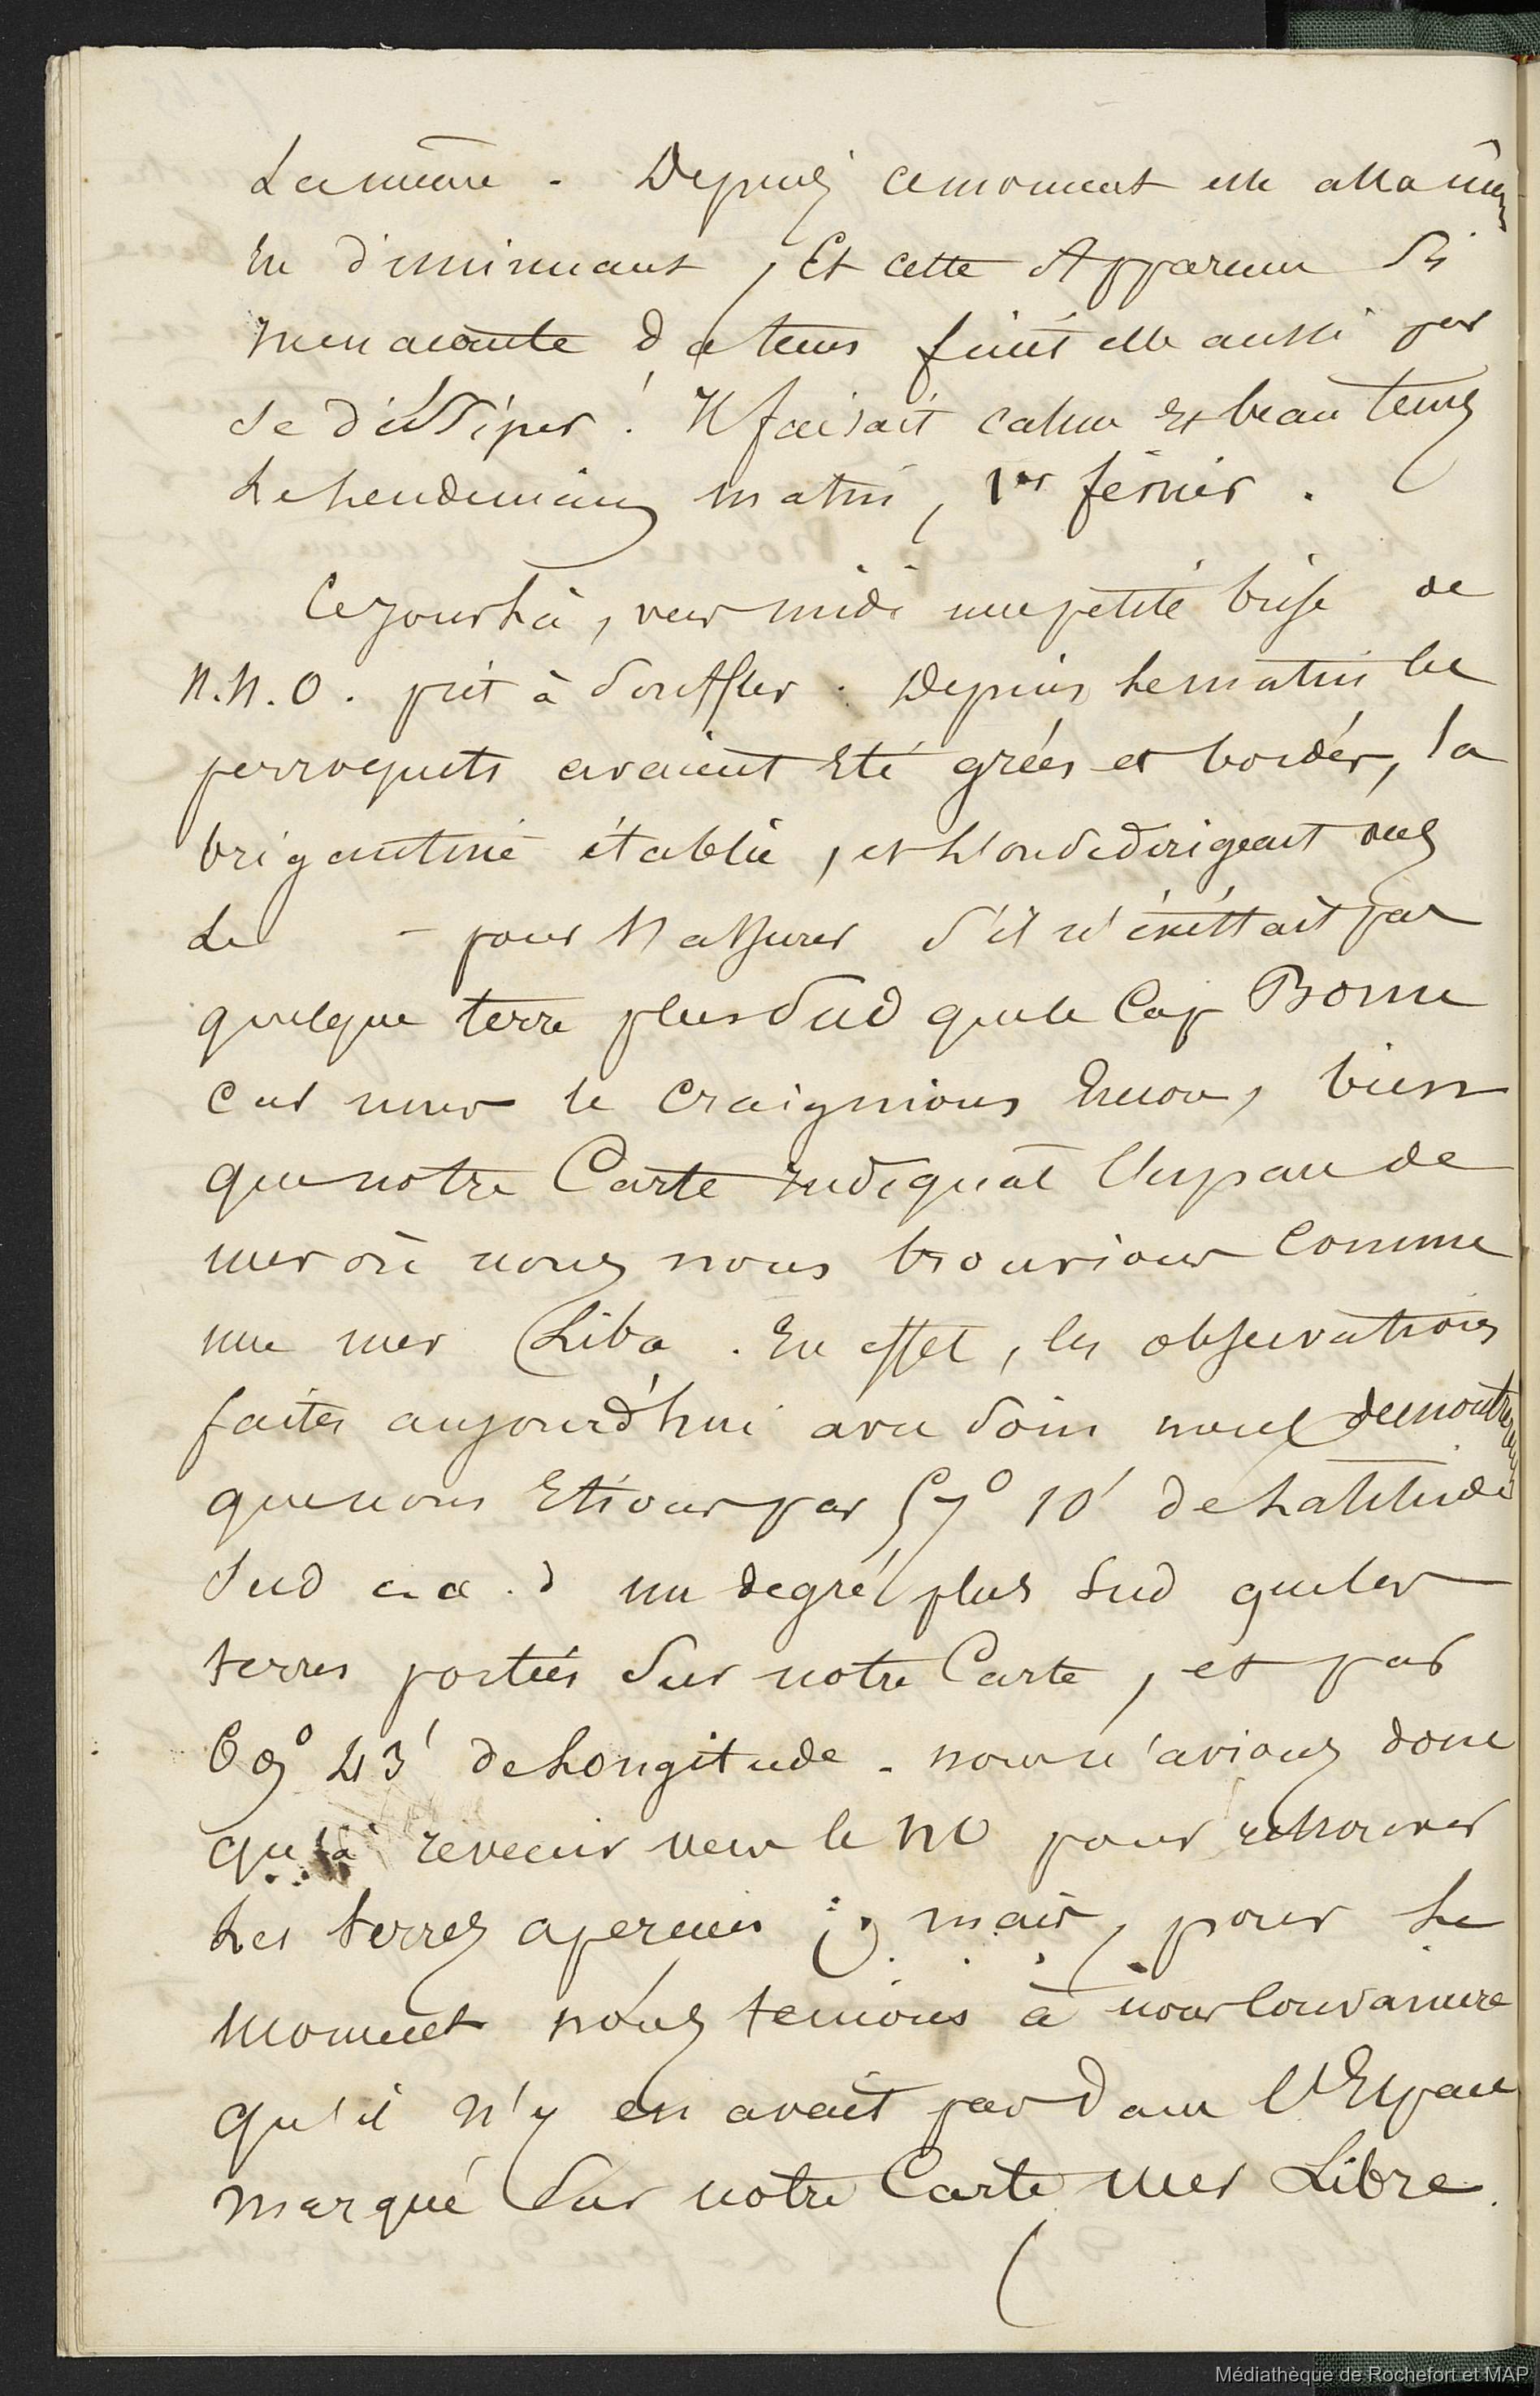 La même. Depuis ce moment elle alla même
En diminuant, Et cette Apparence Si
menaçante de tems finit elle aussi par
Se dissiper ! Il faisait calme Et beau tems
Le Lendemain matin, 1er février.
Ce jour Là, vers midi une petite brise de
N.N.O. prit à Souffler. Depuis Le matin les
perroquets avaient Eté gréés et bordés, la
brigantine établie, et L'on se dirigeait vers
Le - pour s'assurer s'il n'existait pas
quelque terre plus Sud que le Cap Borne
Car nous le Craignions Encore, bien
que notre Carte Indiquât l'espace de
mer où nous nous trouvions Comme
une mer Libre. En effet, les observations
faites aujourd'hui avec Soin nous démontrèrent
que nous Etions par 57° 10' de Latitude
Sud c.a.d un degré plus Sud que les
terres portées Sur notre Carte, et par
69° 43' de Longitude. nous n'avions donc
qu'à revenir vers le NO pour retrouver
Les terres aperçues ; mais, pour Le
moment nous tenions à nous Convaincre
qu'il n'y en avait pas Dans l'Espace
marqué Sur notre Carte mer Libre.
Médiathèque de Rochefort et MAP